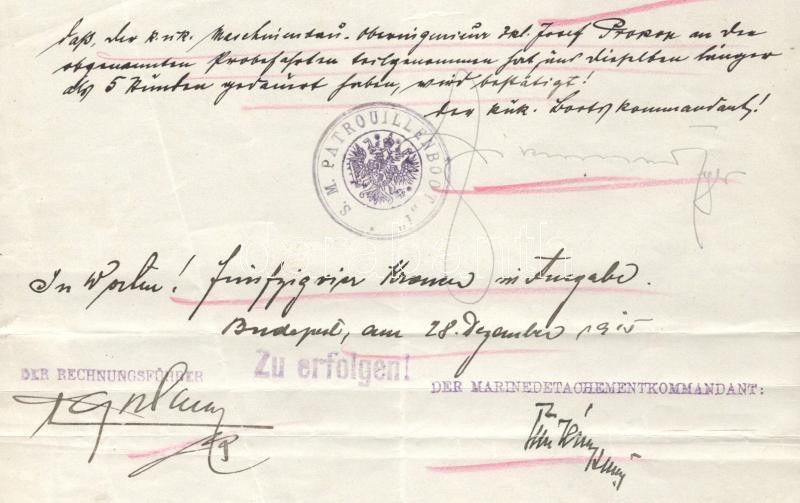 daß, der k.u.k. Maschinenbau-Oberingenieur Josef Prokop an den
obgenannten Probefahrten teilgenommen hat und dieselben länger
als 5 Stunden gedauert haben, wird bestätigt!
Der k.u.k. Bootskommandant!
S. M. PATROUILLENBOOT „i“
In Worten! fünfzigvier Kronen in Ausgabe.
Budapest, am 28. Dezember 1915
DER RECHNUNGSFÜHRER
Zu erfolgen!
DER MARINEDETACHEMENTKOMMANDANT: